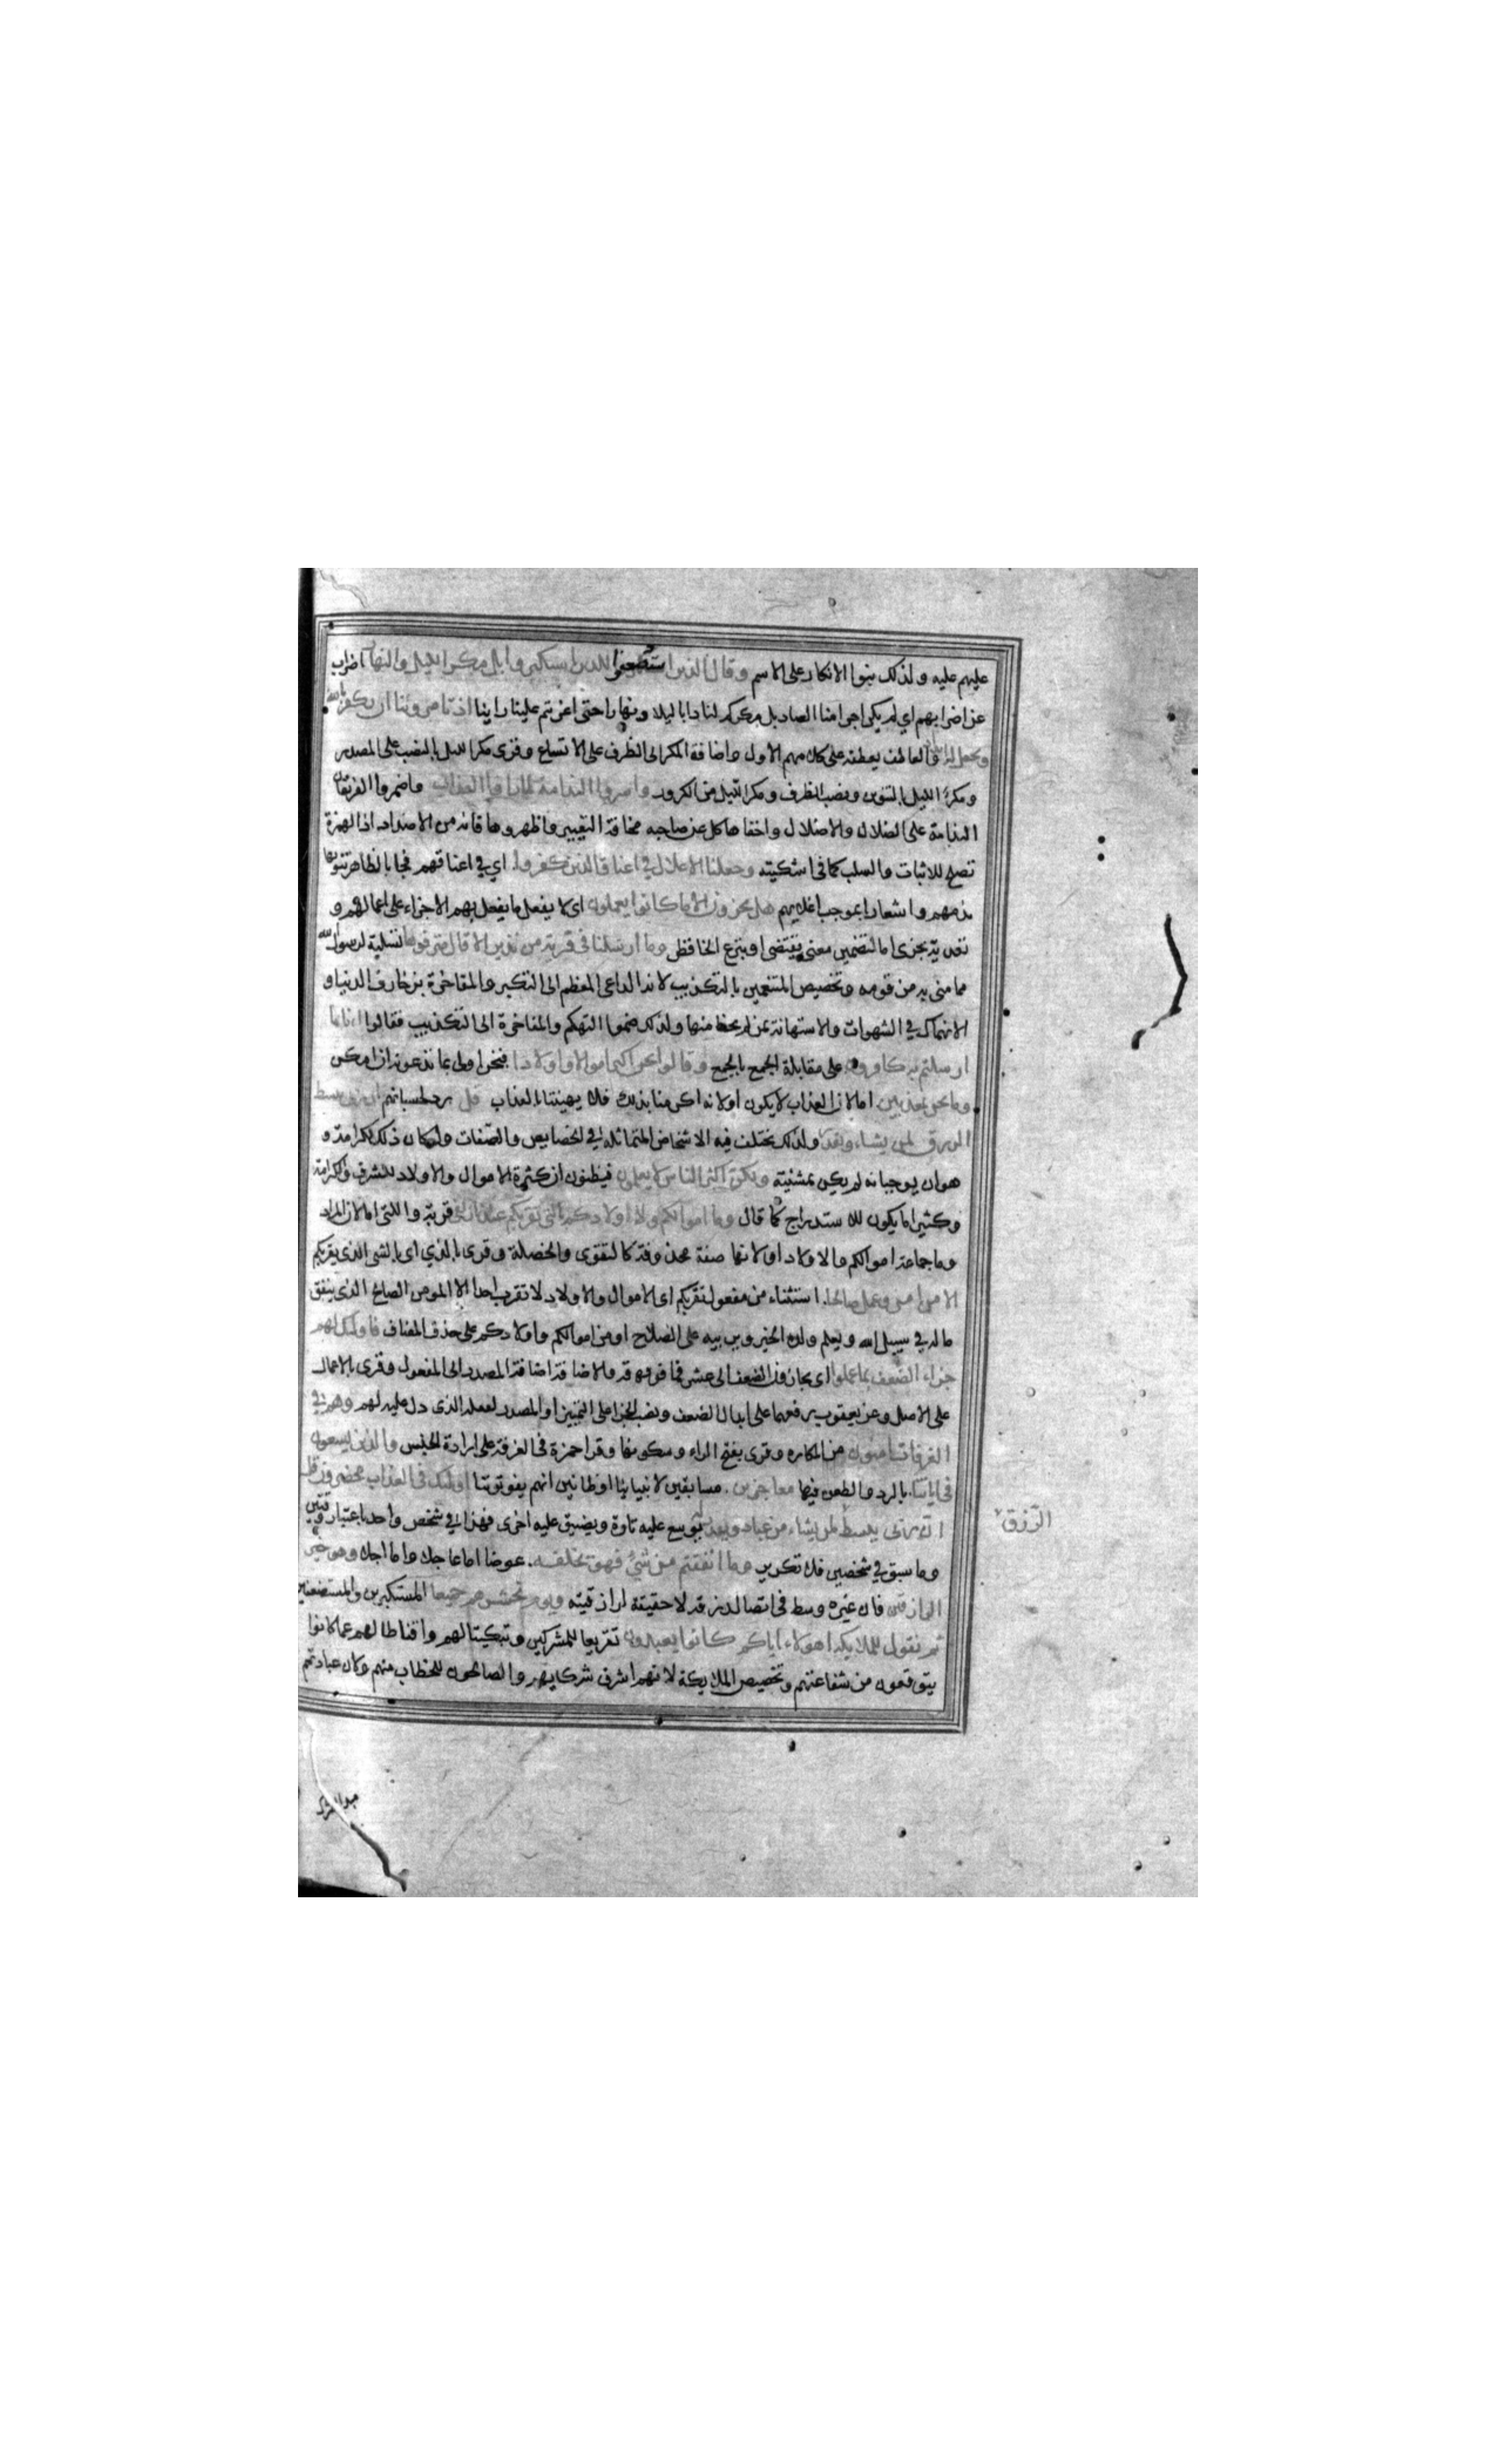 عليهم عليه ولذلك بنوا الانكار على الاسم وقال الذين استضعفوا للذين استكبروا بل مكر الليل والنهار اضراب
عن اضرابهم اي لم يكن اجرامنا الصاد بل مكركم لنا دايبا ليلا ونهارا حتى اغرتم علينا راينا اذ تامروننا ان نكفر بالله
ونجعل له اندادا والعاطف يعطفه على كلامهم الاول واضافة المكر الى الظرف على الاتساع وقرى مكر الليل بالنصب على المصدر
ومكر الليل بالتنوين ونصب الظرف ومكر الليل من الكرور واسروا الندامة لما راوا العذاب واضمروا الفريقان
الندامة على الضلال والاضلال واخفاها كل عن صاحبه مخافة التعيير واظهروها فانه من الاضداد اذ الهمزة
تصلح للاثبات والسلب كما في اشكيته وجعلنا الاغلال في اعناق الذين كفروا اي في اعناقهم فجا بالظاهر تنويها
بذمهم واشعارا بموجب اغلالهم هل يجزون الا ما كانوا يعملون اي لا يفعل ما يفعل بهم الا جزاء على اعمالهم و
تعدية يجزى اما لتضمين معنى يقتضى او بنزع الخافظ وما ارسلنا في قرية من نذير الا قال مترفوها تسلية لرسول الله
مما منى به من قومه وتخصيص المتنعمين بالتكذيب لان الداعى المعظم الى التكبر والمفاخرة بزخارف الدنيا و
الانهماك في الشهوات والاستهانة بمن لم يحظ منها ولذلك ضموا التهكم والمفاخرة الى التكذيب فقالوا انا بما
ارسلتم به كافرون على مقابلة الجمع بالجمع وقالوا نحن اكثر اموالا واولادا فنحن اولى بما تدعونه ان امكن
وما نحن بمعذبين اما لان العذاب لا يكون اولانه اكرمنا بذلك فلا يهيننا بالعذاب قل رد لحسبانهم ان ربى يبسط
الرزق لمن يشاء ويقدر ولذلك يختلف فيه الاشخاص المتماثلة في الخصايص والصفات ولو كان ذلك لكرامة و
هوان يوجبانه لم يكن بمشيته ولكن اكثر الناس لا يعلمون فيظنون ان كثرة الاموال والاولاد للشرف والكرامة
وكثيرا ما يكون للاستدراج كما قال وما اموالكم ولا اولادكم بالتى تقربكم عندنا زلفى قربة والتى اما لان المراد
وما جماعة اموالكم والاولاد او لانها صفة محذوفة كالتقوى والخصلة وقرى بالذي اى بالشى الذى يقربكم
الا من امن وعمل صالحا استثناء من مفعول تقربكم اى الاموال والاولاد لا تقرب احدا الا المومن الصالح الذى ينفق
ماله في سبيل الله ويعلم ولده الخير ويربيه على الصلاح او من اموالكم واولادكم على حذف المضاف فاولئك لهم
جزاء الضعف بما عملوا اى يجازوا الضعف الى عشر فما فوقه والاضافة اضافة المصدر الى المفعول وقرى بالاعمال
على الاصل وعن يعقوب رفعهما على ابدال الضعف ونصب الجزا على التمييز او المصدر لفعله الذى دل عليه لهم وهم في
الغرفات امنون من المكاره وقرى بفتح الراء وسكونها وقرا حمزة في الغرفة على ارادة الجنس والذين يسعون
في اياتنا بالرد والطعن فيها معاجزين مسابقين لانبيائنا او ظانين انهم يفوتوننا اولئك في العذاب محضرون قل
ان ربى يبسط لمن يشاء من عباده ويقدر له يوسع عليه تارة ويضيق عليه اخرى فهذا في شخص واحد باعتبار وقتين
الرزق
وما سبق في شخصين فلا تكرير وما انفقتم من شئ فهو يخلفه عوضا اما عاجلا واما اجلا وهو خير
الرازقين فان غيره وسط في ايصال رزقه لا حقيقة لرازقيته ويوم نحشرهم جميعا المستكبرين والمستضعفين
ثم نقول للملايكة اهولاء اياكم كانوا يعبدون تقريعا للمشركين وتبكيتا لهم واقناطا لهم عما كانوا
يتوقعون من شفاعتهم وتخصيص الملايكة لانهم اشرف شركايهم والصالحون للخطاب منهم وكان عبادتهم
مبدا الشرك